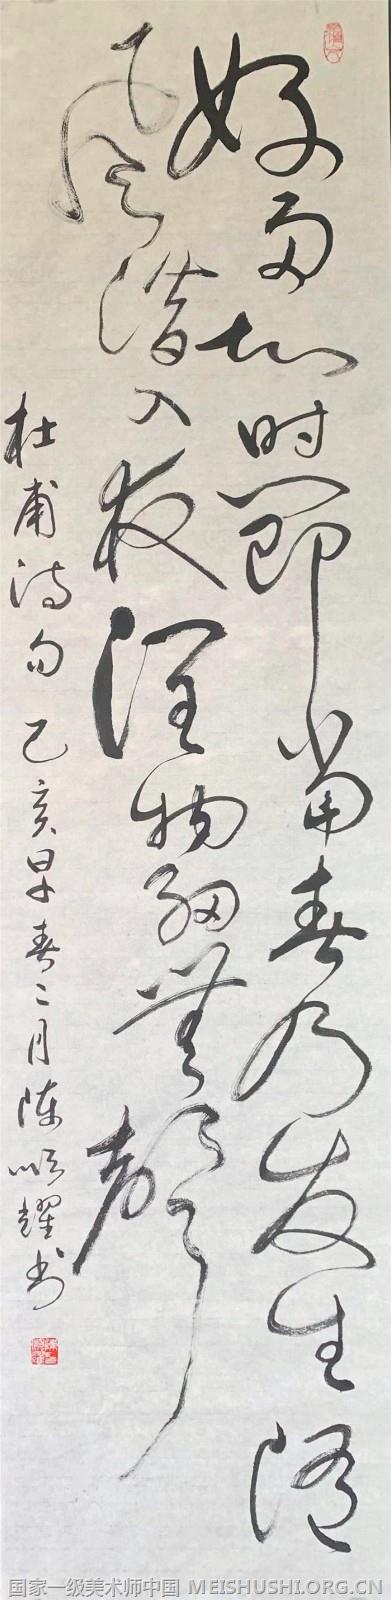 好雨知时节当春乃发生随
风潜入夜润物细无声
杜甫诗句 己亥早春二月陈顺耀书
国家一级美术师中国 MEISHUSHI.ORG.CN